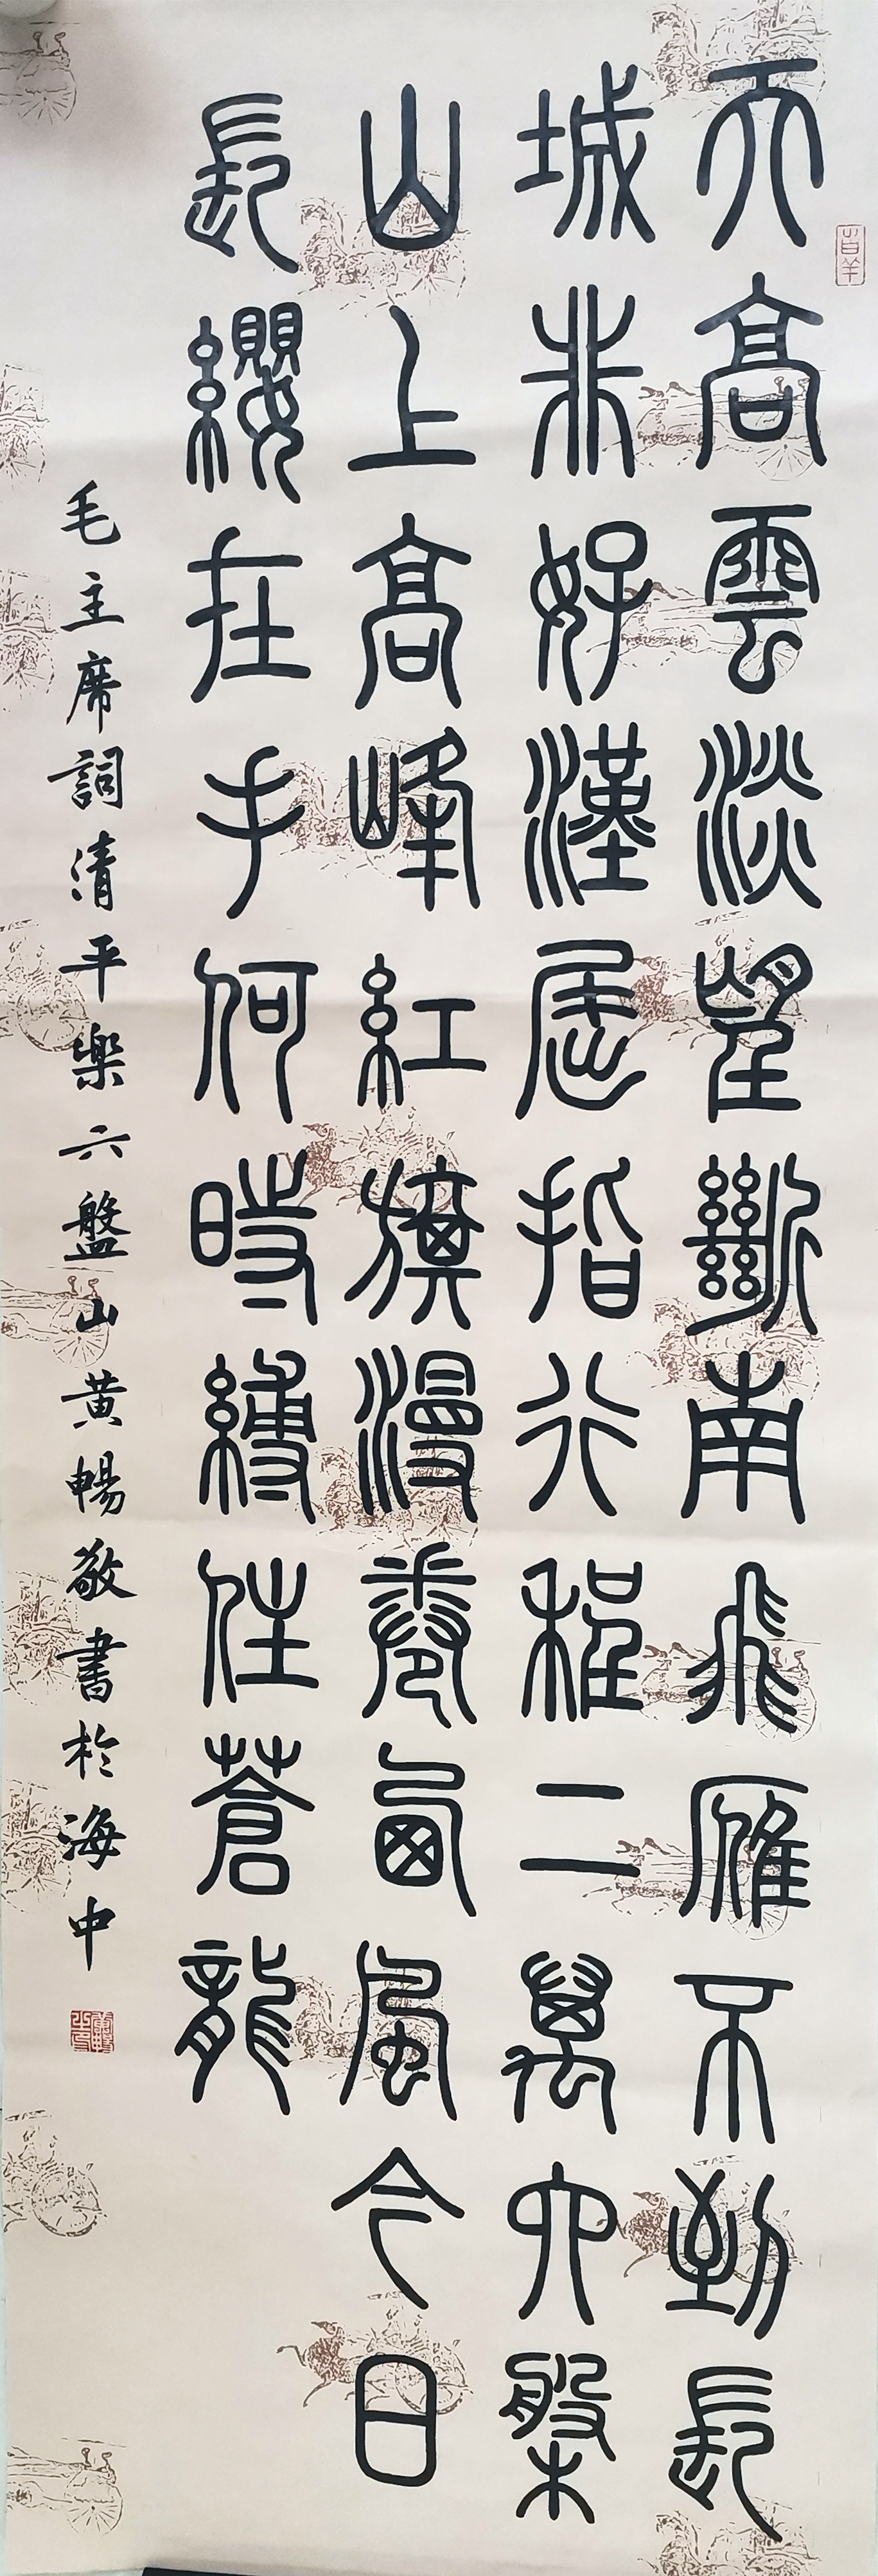 天高雲淡望斷南飛雁不到長
城非好漢屈指行程二萬六槃
山上高峰紅旗漫卷西風今日
長纓在手何時縛住蒼龍
毛主席詞清平樂六盤山黃暢敬書於海中